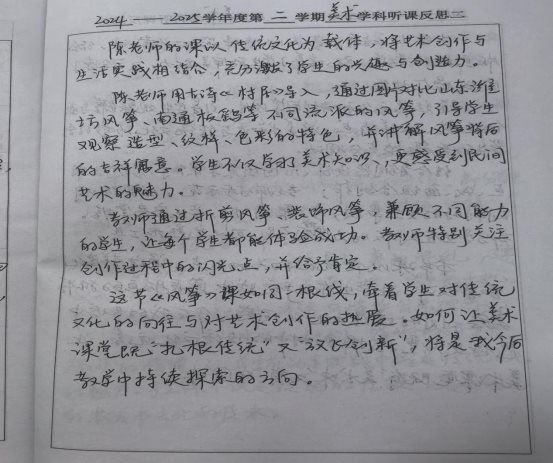 2024——2025学年度第二学期美术学科听课反思二
陈老师的课以传统文化为载体，将艺术创作与
生活实践相结合，充分激发了学生的兴趣与创造力。
陈老师用古诗《村居》导入，通过图片对比山东潍
坊风筝、南通板鹞等不同流派的风筝，引导学生
观察造型、纹样、色彩的特色，并讲解风筝背后
的吉祥寓意。学生不仅学了美术知识，更感受到民间
艺术的魅力。
教师通过折剪风筝、装饰风筝，兼顾不同能力
的学生，让每个学生都能体验成功。教师特别关注
创作过程中的闪光点，并给予肯定。
这节《风筝》课如同一根线，牵着学生对传统
文化的向往与对艺术创作的热爱。如何让美术
课堂既“扎根传统”又“放飞创新”，将是我今后
教学中持续探索的方向。